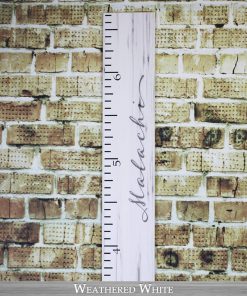 6
Malachi
5
4
WEATHERED WHITE